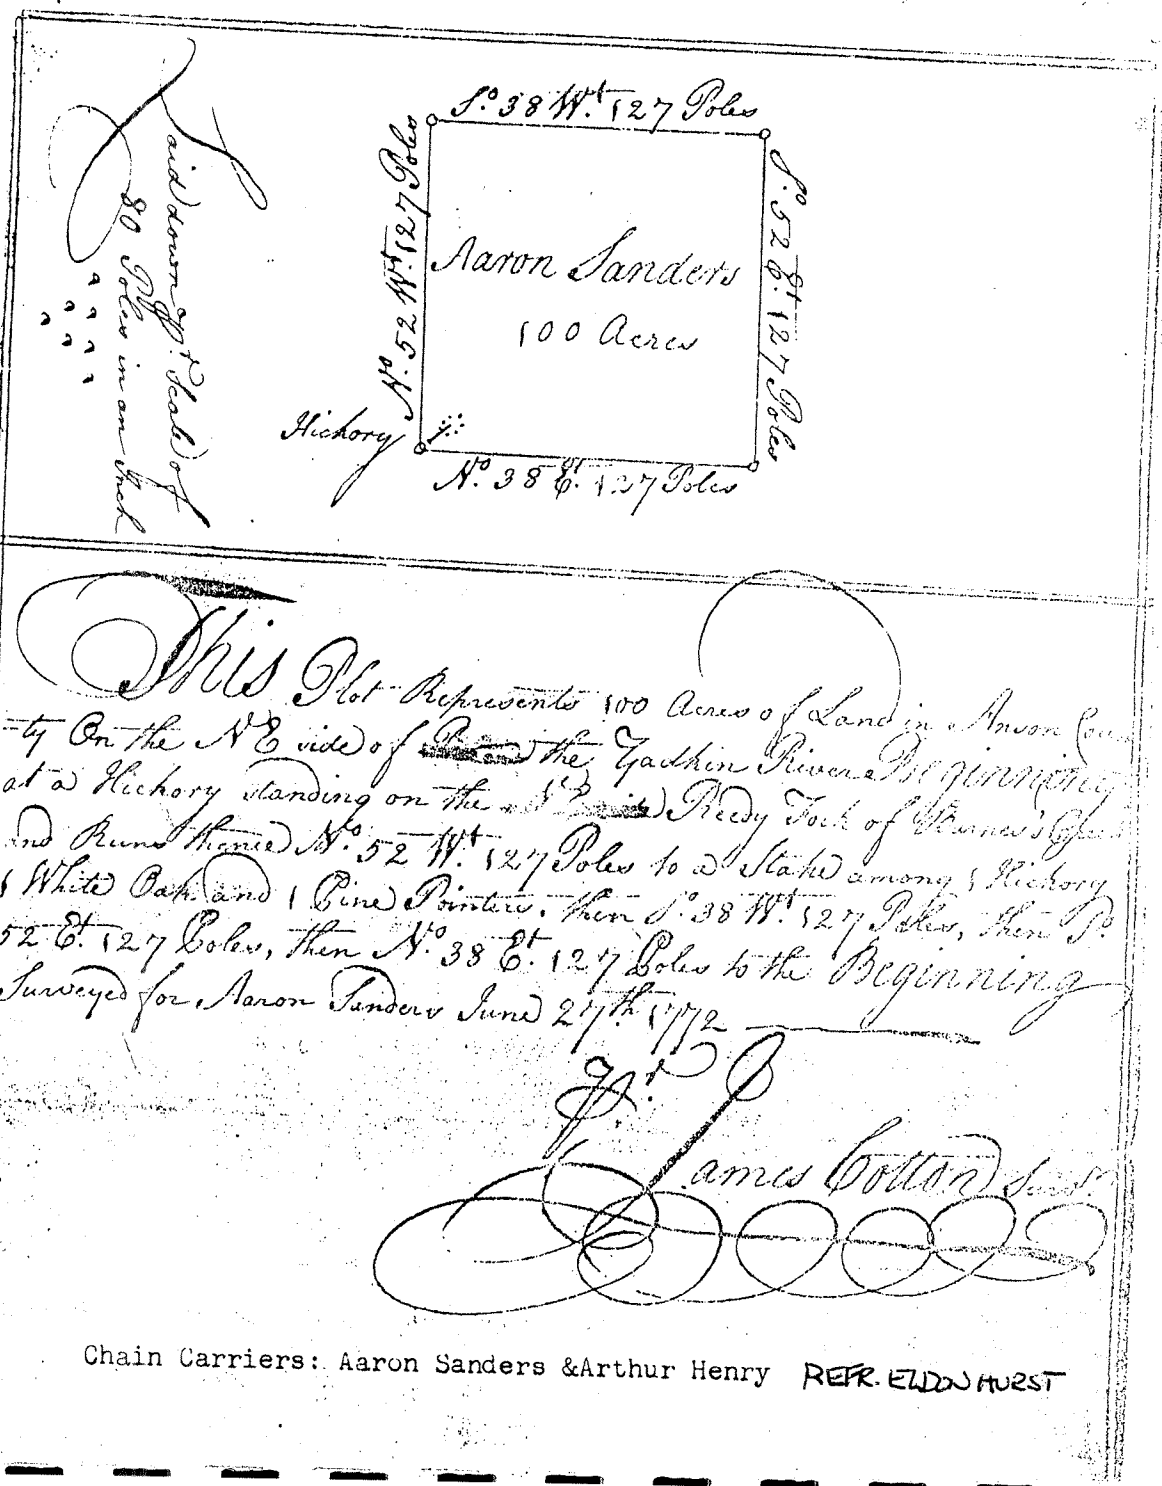 So. 38 Wt. 127 Poles
No. 52 Wt. 127 Poles
So. 52 Et. 127 Poles
Aaron Sanders
100 Acres
Hickory
No. 38 Et. 127 Poles
Laid down Pr. Scale of
80 Poles in an Inch
This Plot Represents 100 Acres of Land in Anson Coun
-ty On the N E side of the Yadkin River Beginning
at a Hickory standing on the Reedy Fork of Creek
and Runs thence No. 52 Wt. 127 Poles to a Stake among 1 Hickory
1 White Oak and 1 Pine Pointers, then So. 38 Wt. 127 Poles, then So.
52 Et. 127 Poles, then No. 38 Et. 127 Poles to the Beginning
Surveyed for Aaron Sanders June 27th. 1772
Pr.
James Cotton Survr.
Chain Carriers: Aaron Sanders &Arthur Henry REFR. ELDON HURST